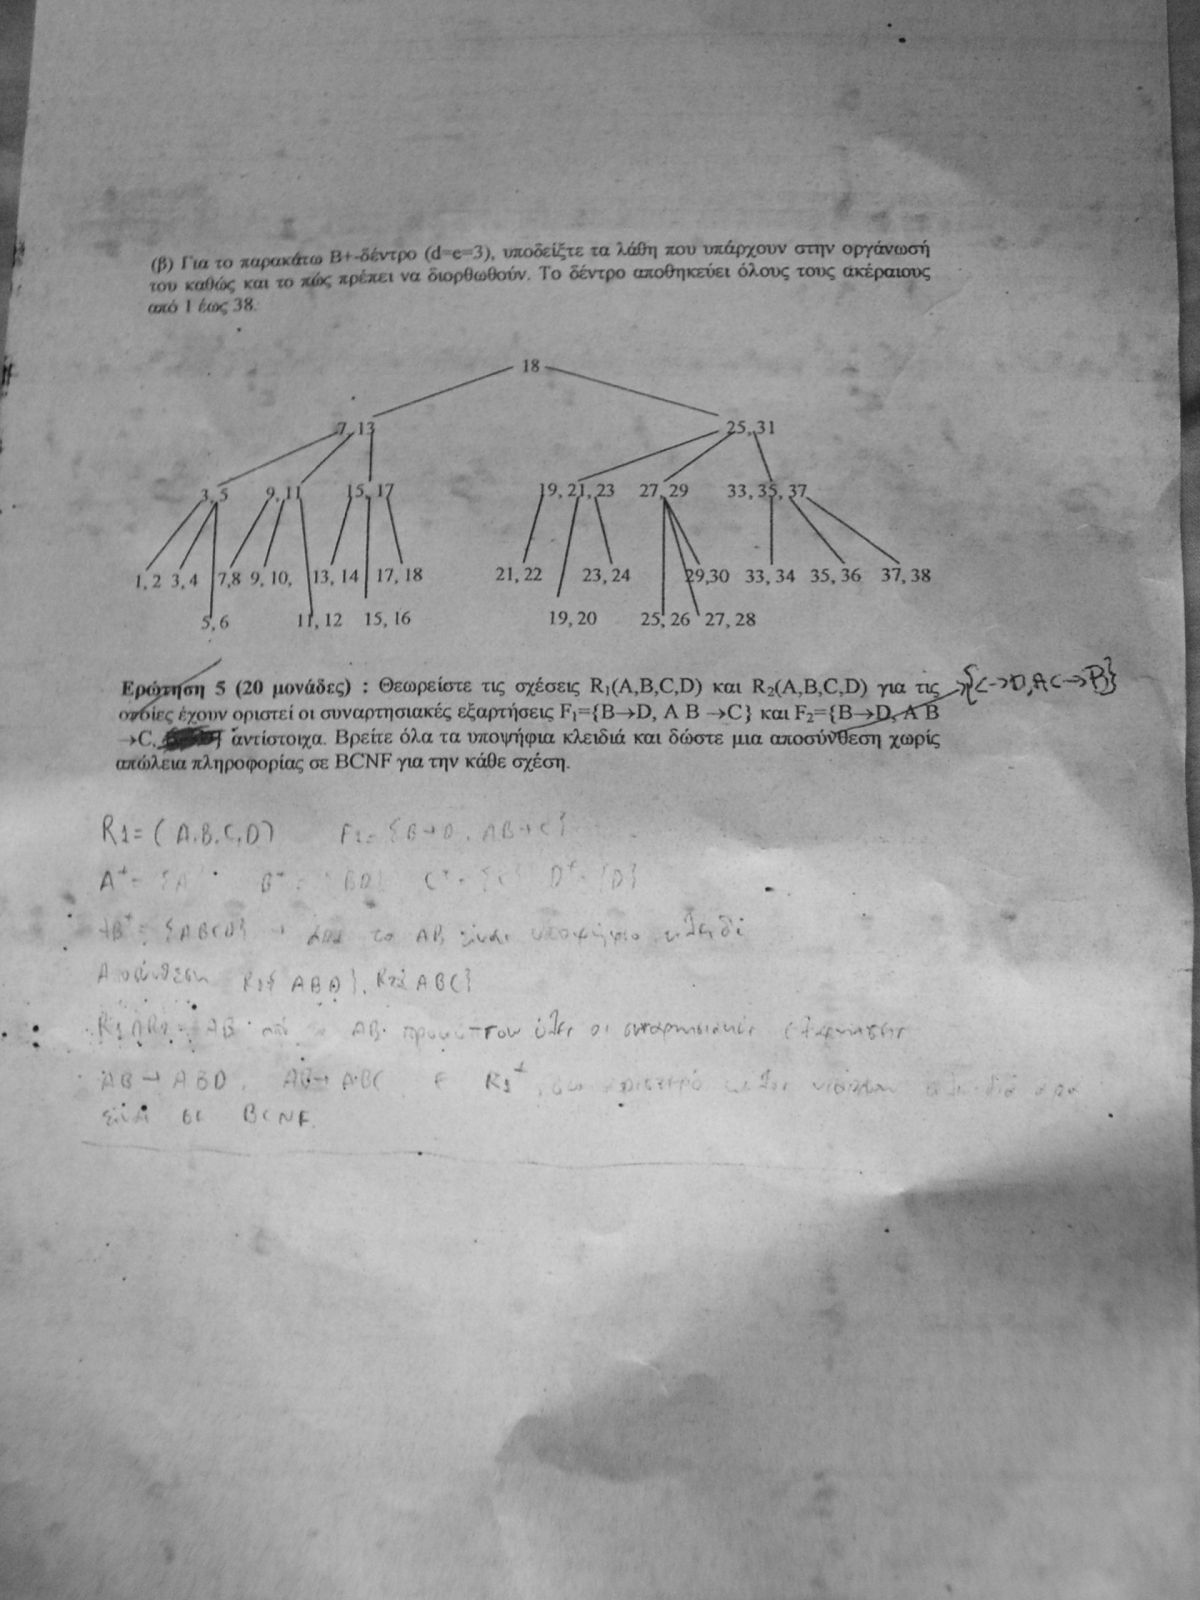 (β) Για το παρακάτω B+-δέντρο (d=e=3), υποδείξτε τα λάθη που υπάρχουν στην οργάνωσή
του καθώς και το πώς πρέπει να διορθωθούν. Το δέντρο αποθηκεύει όλους τους ακέραιους
από 1 έως 38.
18
7, 13 25, 31
3, 5 9, 11 15, 17 19, 21, 23 27, 29 33, 35, 37
1, 2 3, 4 7,8 9, 10, 13, 14 17, 18 21, 22 23, 24 29,30 33, 34 35, 36 37, 38
5, 6 11, 12 15, 16 19, 20 25, 26 27, 28
Ερώτηση 5 (20 μονάδες) : Θεωρείστε τις σχέσεις R₁(A,B,C,D) και R₂(A,B,C,D) για τις {C→D, AC→B}
οποίες έχουν οριστεί οι συναρτησιακές εξαρτήσεις F₁={B→D, A B →C} και F₂={B→D, A B
→C, } αντίστοιχα. Βρείτε όλα τα υποψήφια κλειδιά και δώστε μια αποσύνθεση χωρίς
απώλεια πληροφορίας σε BCNF για την κάθε σχέση.
R1=(A,B,C,D) F1={B→D, AB→C}
A⁺={A} B⁺={BD} C⁺={C} D⁺={D}
AB⁺={ABCD} → το AB είναι υποψήφιο κλειδί
R1{ABD}, R2{ABC}
R1∩R2=AB AB προκύπτουν όλες οι συναρτησιακές εξαρτήσεις
AB→ABD, AB→ABC R1⁺
είναι σε BCNF.